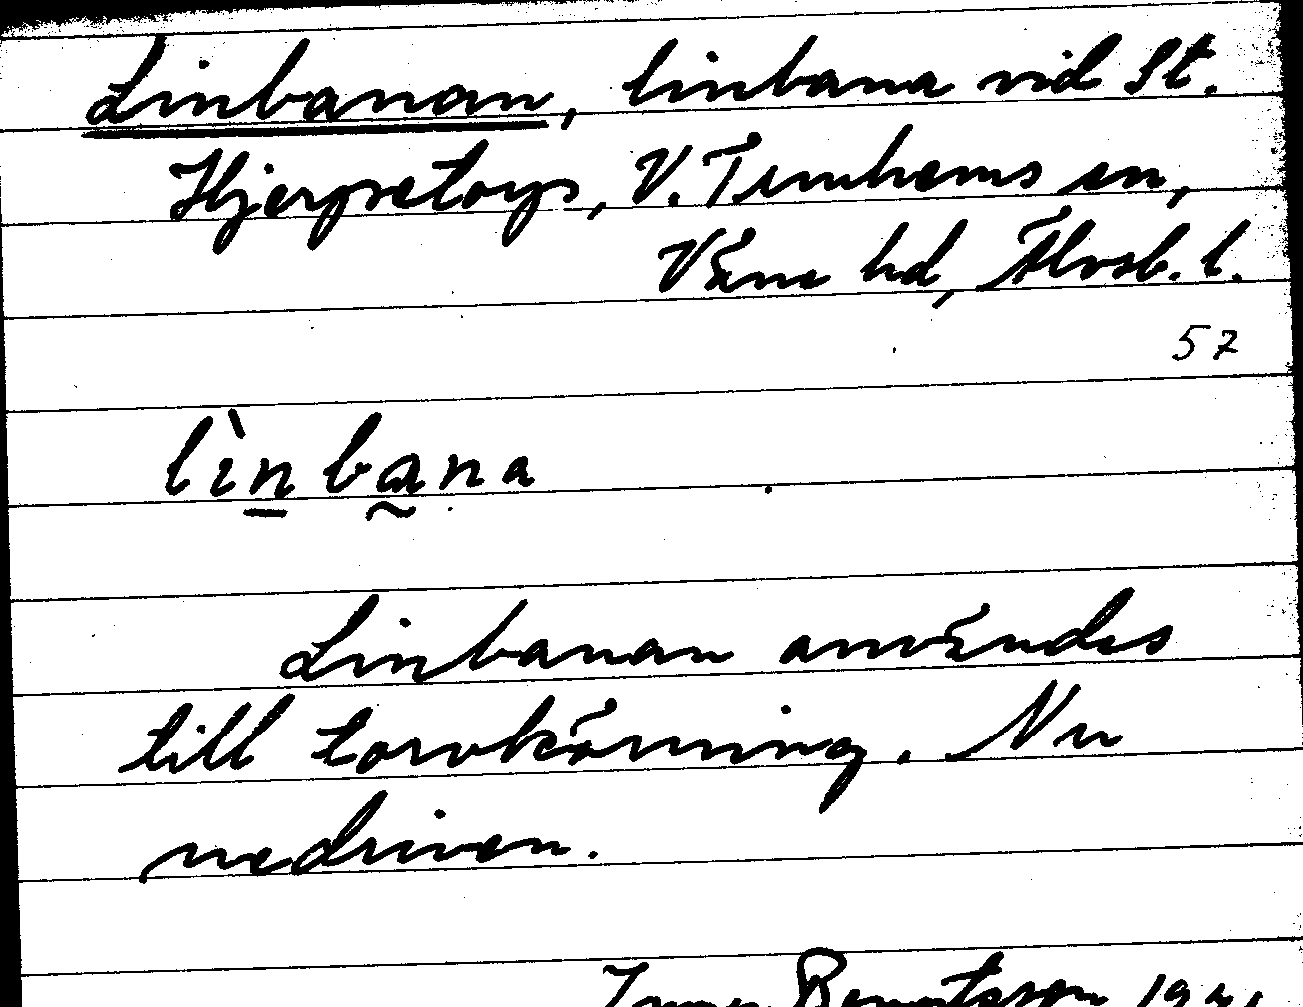 Linbanan, linbana vid St.
Hjerpetorp, V. Tunhems sn,
Väne hd, Älvsb. l.
57
lìnbana
Linbanan användes
till torvkörning. Nu
nedriven.
Bengtsson